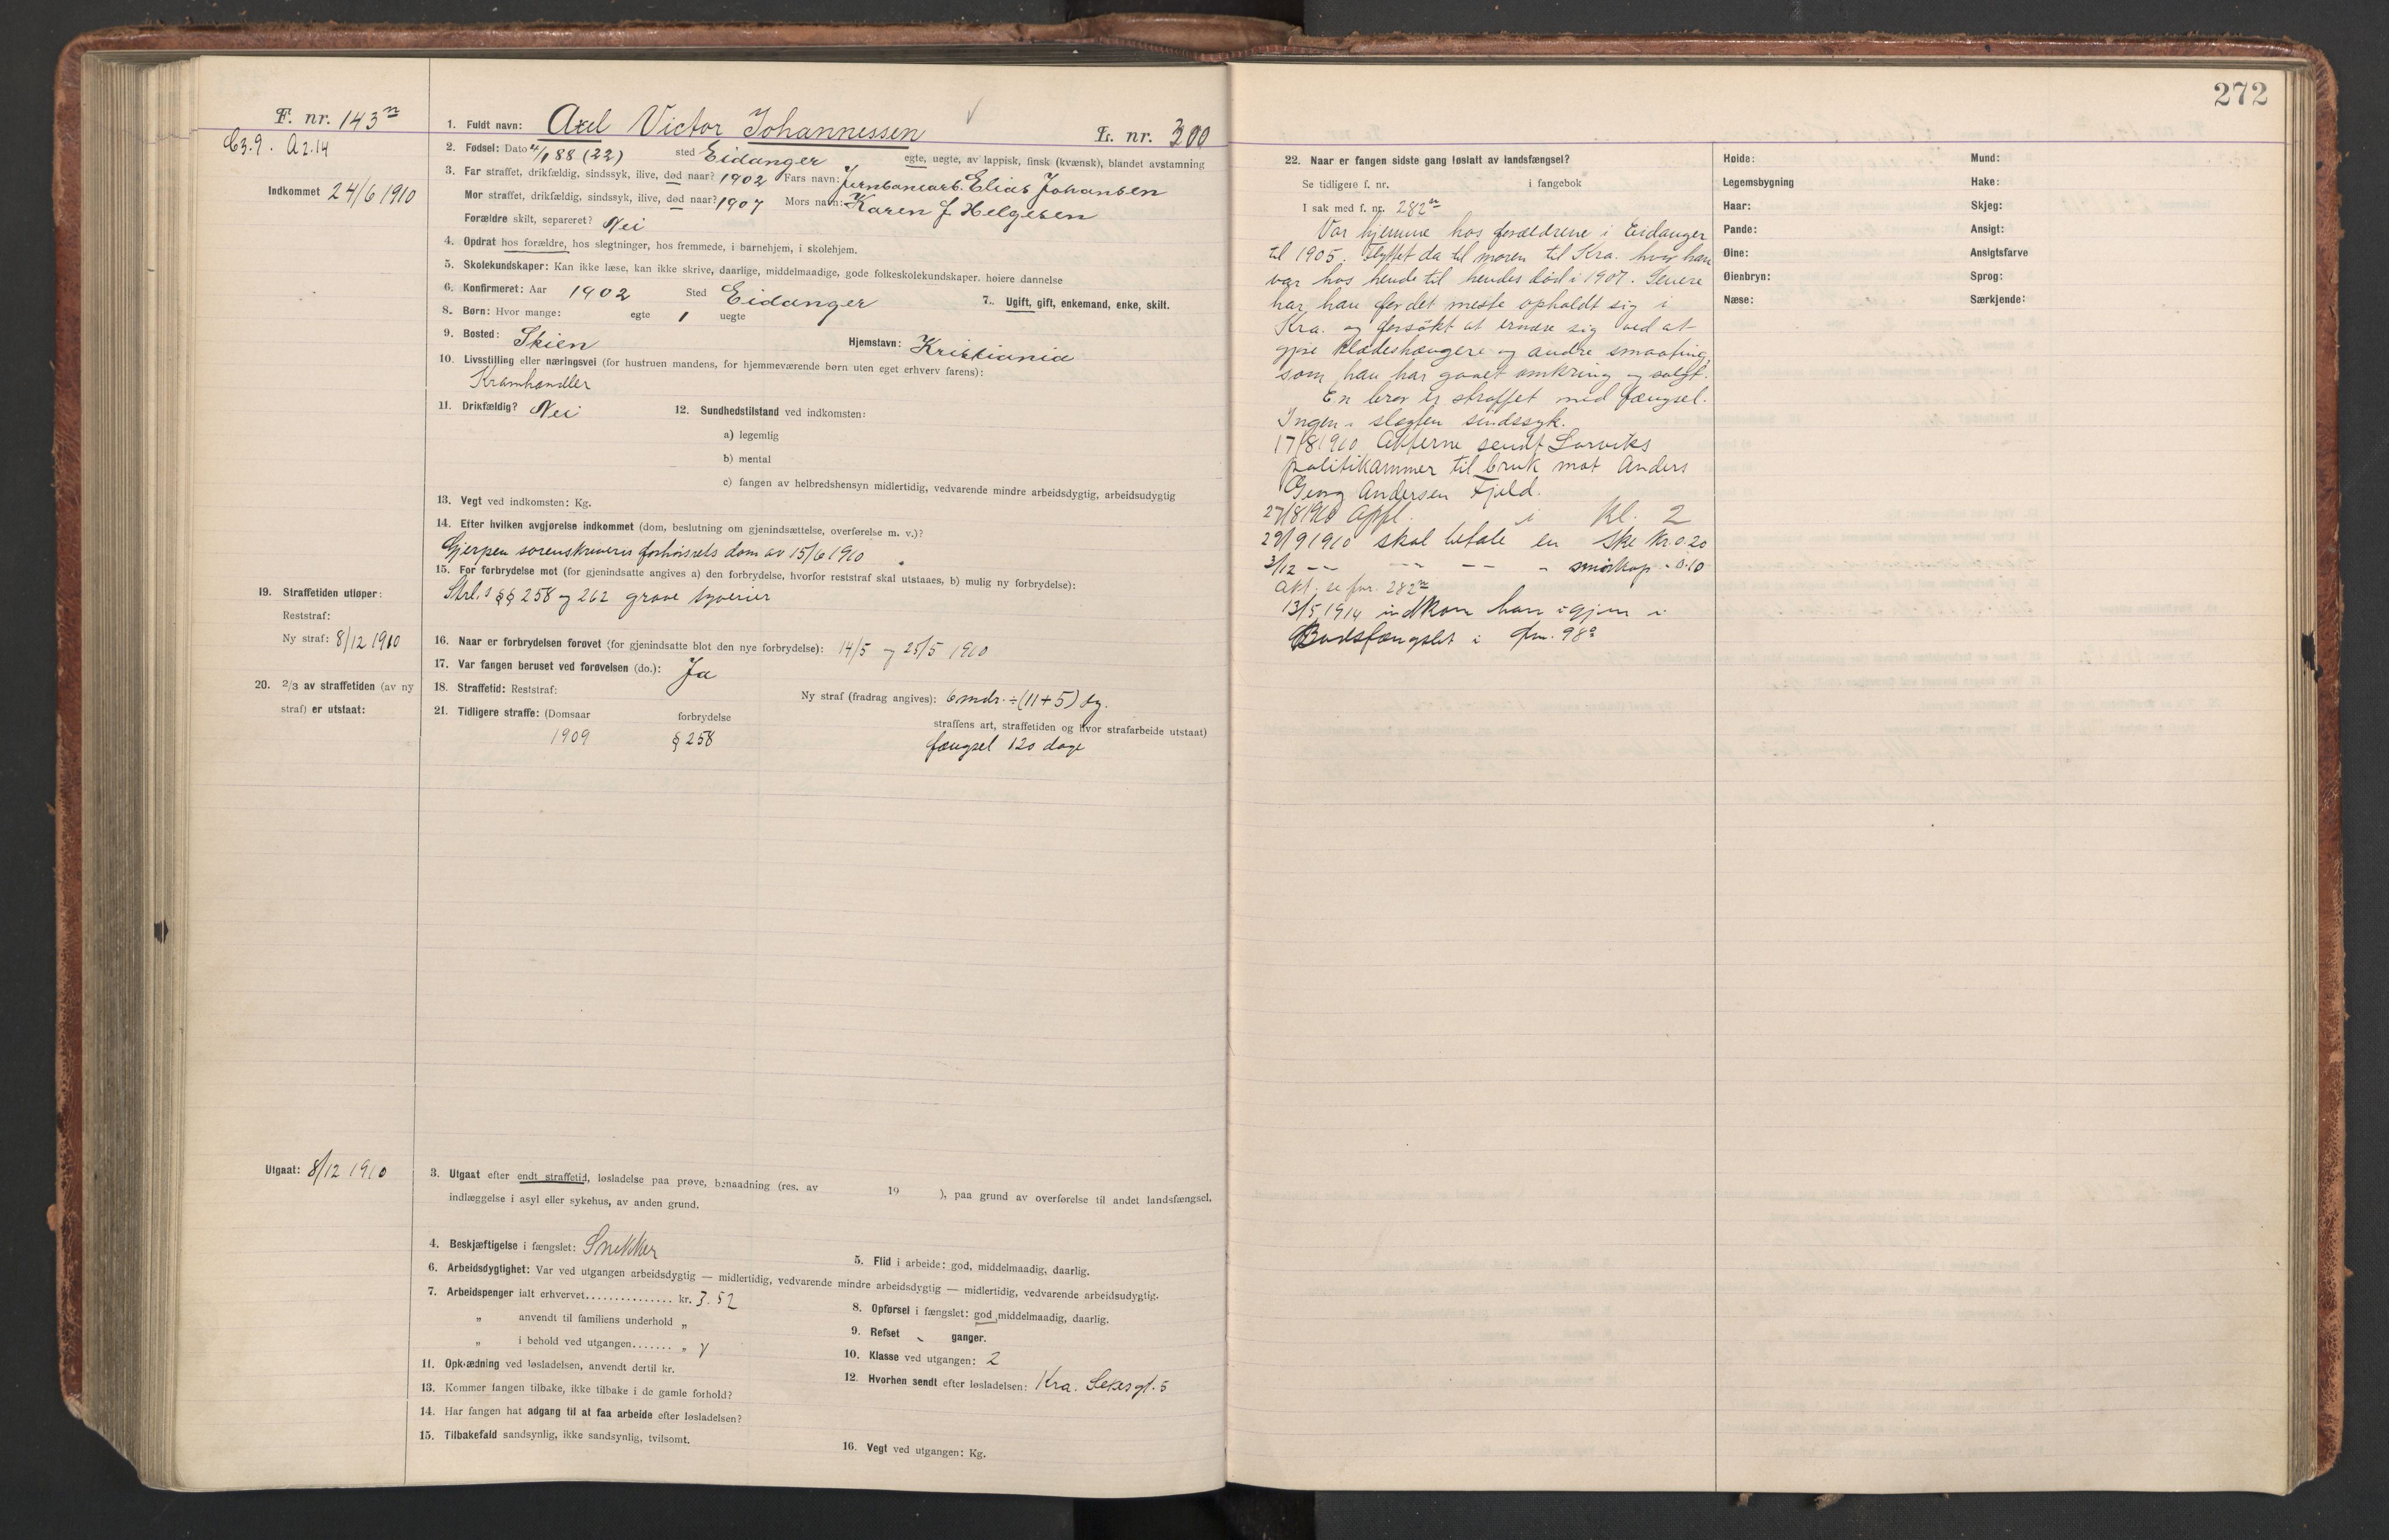 F. nr. 143n
C3.9. A2.14
Indkommet 24/6 1910
1. Fuldt navn: Axel Victor Johannessen L. nr. 300
2. Fødsel: Dato 4/1 88 (22) sted Eidanger egte, uegte, av lappisk, finsk (kvænsk), blandet avstamning
3. Far straffet, drikfældig, sindssyk, ilive, død naar? 1902 Fars navn: Jernbanearb. Elias Johansen
Mor straffet, drikfældig, sindssyk, ilive, død naar? 1907 Mors navn: Karen J Helgesen
Forældre skilt, separeret? Nei
4. Opdrat hos forældre, hos slegtninger, hos fremmede, i barnehjem, i skolehjem.
5. Skolekundskaper: Kan ikke læse, kan ikke skrive, daarlige, middelmaadige, gode folkeskolekundskaper. høiere dannelse
6. Konfirmeret: Aar 1902 Sted Eidanger 7. Ugift, gift, enkemand, enke, skilt.
8. Børn: Hvor mange: egte 1 uegte
9. Bosted: Skien Hjemstavn: Kristiania
10. Livsstilling eller næringsvei (for hustruen mandens, for hjemmeværende børn uten eget erhverv farens):
Kramhandler
11. Drikfældig? Nei 12. Sundhedstilstand ved indkomsten:
a) legemlig
b) mental
c) fangen av helbredshensyn midlertidig, vedvarende mindre arbeidsdygtig, arbeidsudygtig
13. Vegt ved indkomsten: Kg.
14. Efter hvilken avgjørelse indkommet (dom, beslutning om gjenindsættelse, overførelse m. v.)?
Gjerpen sorenskriveris forhørsrets dom av 15/6 1910
15. For forbrydelse mot (for gjenindsatte angives a) den forbrydelse, hvorfor reststraf skal utstaaes, b) mulig ny forbrydelse):
Strl.s §§ 258 og 262 grove tyverier
16. Naar er forbrydelsen forøvet (for gjenindsatte blot den nye forbrydelse): 14/5 og 25/5 1910
17. Var fangen beruset ved forøvelsen (do.): Ja
18. Straffetid: Reststraf: Ny straf (fradrag angives): 6 mdr. ÷ (11+5) dg.
19. Straffetiden utløper:
Reststraf:
Ny straf: 8/12 1910
20. 2/3 av straffetiden (av ny
straf) er utstaat:
21. Tidligere straffe: (Domsaar forbrydelse straffens art, straffetiden og hvor strafarbeide utstaat)
1909 § 258 fængsel 120 dage
Utgaat: 8/12 1910
3. Utgaat efter endt straffetid, løsladelse paa prøve, benaadning (res. av 19 ), paa grund av overførelse til andet landsfængsel,
indlæggelse i asyl eller sykehus, av anden grund.
4. Beskjæftigelse i fængslet: Snekker
5. Flid i arbeide: god, middelmaadig, daarlig.
6. Arbeidsdygtighet: Var ved utgangen arbeidsdygtig — midlertidig, vedvarende mindre arbeidsdygtig — midlertidig, vedvarende arbeidsudygtig.
7. Arbeidspenger ialt erhvervet............... kr. 3.52
8. Opførsel i fængslet: god, middelmaadig, daarlig.
„ anvendt til familiens underhold „
9. Refset - ganger.
„ i behold ved utgangen....... „
10. Klasse ved utgangen: 2
11. Opklædning ved løsladelsen, anvendt dertil kr.
12. Hvorhen sendt efter løsladelsen: Kra. 5
13. Kommer fangen tilbake, ikke tilbake i de gamle forhold?
14. Har fangen hat adgang til at faa arbeide efter løsladelsen?
15. Tilbakefald sandsynlig, ikke sandsynlig, tvilsomt.
16. Vegt ved utgangen: Kg.
272
22. Naar er fangen sidste gang løslatt av landsfængsel?
Se tidligere f. nr. i fangebok
I sak med f. nr. 282n
Var hjemme hos forældrene i Eidanger
til 1905. Flyttet da til moren til Kra. hvor han
var hos hende til hendes død i 1907. Senere
har han for det meste opholdt sig i
Kra. og forsøkt at ernære sig ved at
gjøre klædeshængere og andre smaating,
som han har gaaet omkring og solgt.
En bror er straffet med fængsel.
Ingen i slegten sindssyk.
17/8 1910. Akterne sendt Larviks
politikammer til bruk mot Anders
Georg Andersen Fjeld.
27/8 1910 Opfl. i Kl. 2
29/9 1910 skal betale en ske kr. 0.20
3/12 -- -- -- - smørkop - 0.10
Akt. se fnr. 282n
13/5 1914 indkom han igjen i
Bodsfængslet i fnr. 98
Høide:
Legemsbygning
Haar:
Pande:
Øine:
Øienbryn:
Næse:
Mund:
Hake:
Skjeg:
Ansigt:
Ansigtsfarve
Sprog:
Særkjende: